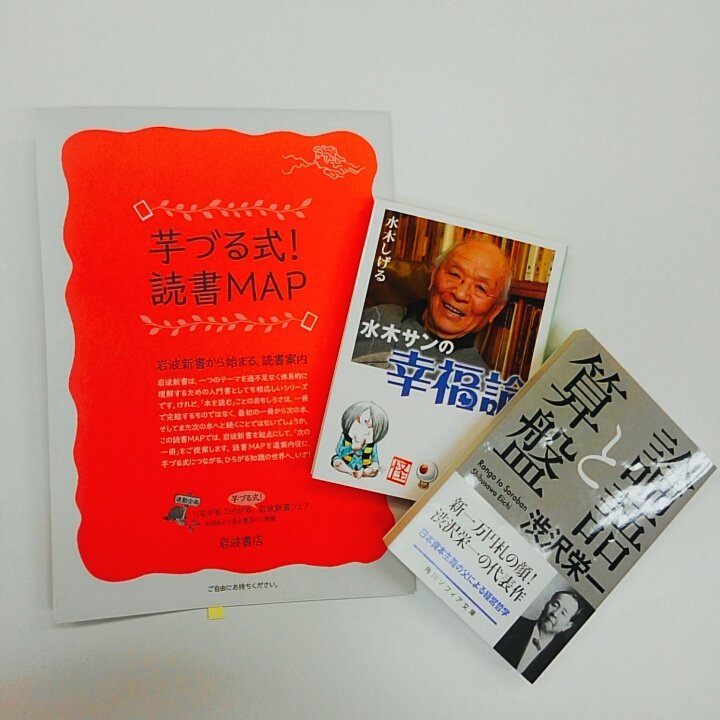 芋づる式!
読書MAP
岩波新書から始まる、読書案内
岩波新書は、一つのテーマを過不足なく体系的に
理解するための入門書としても相応しいシリーズ
です。けれど、「本を読む」ことのおもしろさは、一冊
で完結するものではなく、最初の一冊から次の本、
そしてまた次の本へと続くことではないでしょうか。
この読書MAPでは、岩波新書を起点にして、「次の
一冊」をご提案します。読書MAPを道案内役に、
芋づる式につながる、ひろがる知識の世界へ、いざ!
連動企画
芋づる式!
つながる ひろがる 岩波新書フェア
岩波書店
ご自由にお持ちください。
水木しげる
水木サンの
幸福論
怪
論語
と
算盤
Rongo to Soroban
Shibusawa Eiichi
渋沢栄一
新一万円札の顔!
渋沢栄一の代表作
日本資本主義の父による経営哲学
角川ソフィア文庫